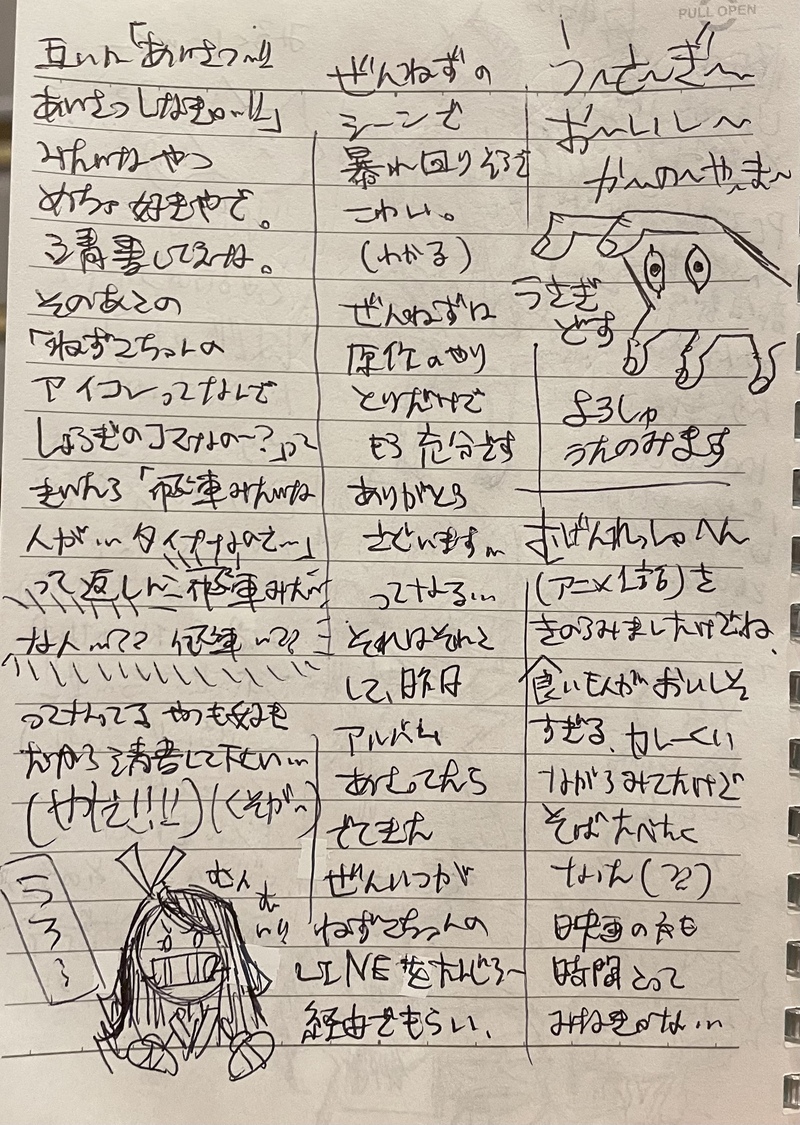 PULL OPEN
互いに「あいさつ〜!!
あいさつしなきゃ〜!!」
みんなやつ
めちゃ好きやで。
清書してえな。
そのあとの
「ねずこちゃんの
アイコンってなんで
しょうぎのコマなの〜?」って
きいたら「飛車みたいな
人が…タイプなのさ〜」
って返した 飛車みたい
な人…?? 飛車…??
ってなってるやつも好き
だから清書して下さい…
(やれと!!!!)(くそが〜)
うろ〜
むん
むり
ぜんねずの
シーンで
暴れ回りそうで
こわい。
(わかる)
ぜんねずは
原作のやり
とりだけで
もう充分です
ありがとう
ございます…
ってなる…
それはそれと
して、昨日
アルバム
あさってたら
でてきた
ぜんいつが
ねずこちゃんの
LINEをたんじろ〜
経由でもらい、
う〜さ〜ぎ〜
お〜いし〜
か〜の〜や〜ま〜
うさぎ
どす
よろしゅ
うたのみます
むげんれっしゃへん
(アニメ1話)を
きのうみましたけどね、
食いもんがおいしそ
すぎる、カレーくい
ながらみてたけど
そばたべたく
なった(??)
映画の方も
時間とって
みなきゃな…